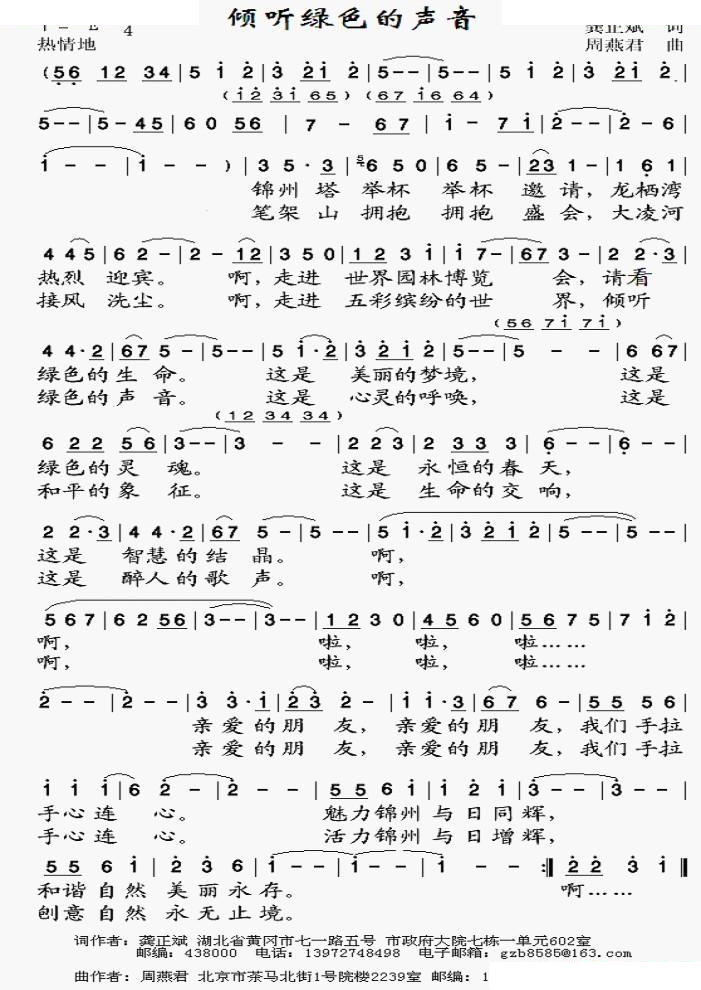 倾听绿色的声音
龚正斌 词
热情地
周燕君 曲
(56 12 34|5 1 2|3 21 2|5--|5--|5 1 2|3 21 2.|
(12 31 65) (67 16 64)
5--|5-45|60 56|7 - 67|1 - 71|2--|2-6|
1 - -|1 - - )|3 5·3|6 5 0|6 5 -|23 1 -|1 6 1|
锦州 塔 举杯 举杯 邀 请，龙栖湾
笔架 山 拥抱 拥抱 盛 会，大凌河
4 45|6 2 -|2 - 12|3 5 0|1 2 3 1|1 7-|67 3 -|2 2·3|
热烈 迎宾。 啊，走进 世界园林博览 会，请看
接风 洗尘。 啊，走进 五彩缤纷的世 界，倾听
(56 71 71)
4 4·2|67 5 -|5--|5 1·2|3 2 1 2|5--|5 - -|6 67|
绿色的生命。 这是 美丽的梦境， 这是
绿色的声音。 这是 心灵的呼唤， 这是
(12 34 34)
6 2 2 5 6|3--|3 - -|2 2 3|2 3 3 3|6 - -|6 - -|
绿色的灵 魂。 这是 永恒的春天，
和平的象 征。 这是 生命的交响，
2 2·3|4 4·2|67 5 -|5 --|5 1·2|3 2 1 2|5 --|5 --|
这是 智慧的结 晶。 啊，
这是 醉人的歌 声。 啊，
5 6 7|6 2 56|3--|3--|1 2 3 0|4 5 6 0|5 6 7 5|7 1 2|
啊， 啦， 啦， 啦……
啊， 啦， 啦， 啦……
2 - -|2 - -|3 3·1|23 2 -|1 1·3|67 6 -|5 5 5 6|
亲爱的朋 友，亲爱的朋 友，我们手拉
亲爱的朋 友，亲爱的朋 友，我们手拉
1 1 1|6 2 -|2 - -|5 5 6 1|1 2 1|2 3 -|3 - -|
手心连 心。 魅力锦州与日同辉，
手心连 心。 活力锦州与日增辉，
5 5 6 1|2 3 6|1 - -|1 - -|1 - - :‖2 2 3 1‖
和谐自然 美丽永存。 啊……
刨意自然 永无止境。
词作者：龚正斌 湖北省黄冈市七一路五号 市政府大院七栋一单元602室
邮编：438000 电话：13972748498 电子邮箱：gzb8585@163.com
曲作者：周燕君 北京市茶马北街1号院楼2239室 邮编：1